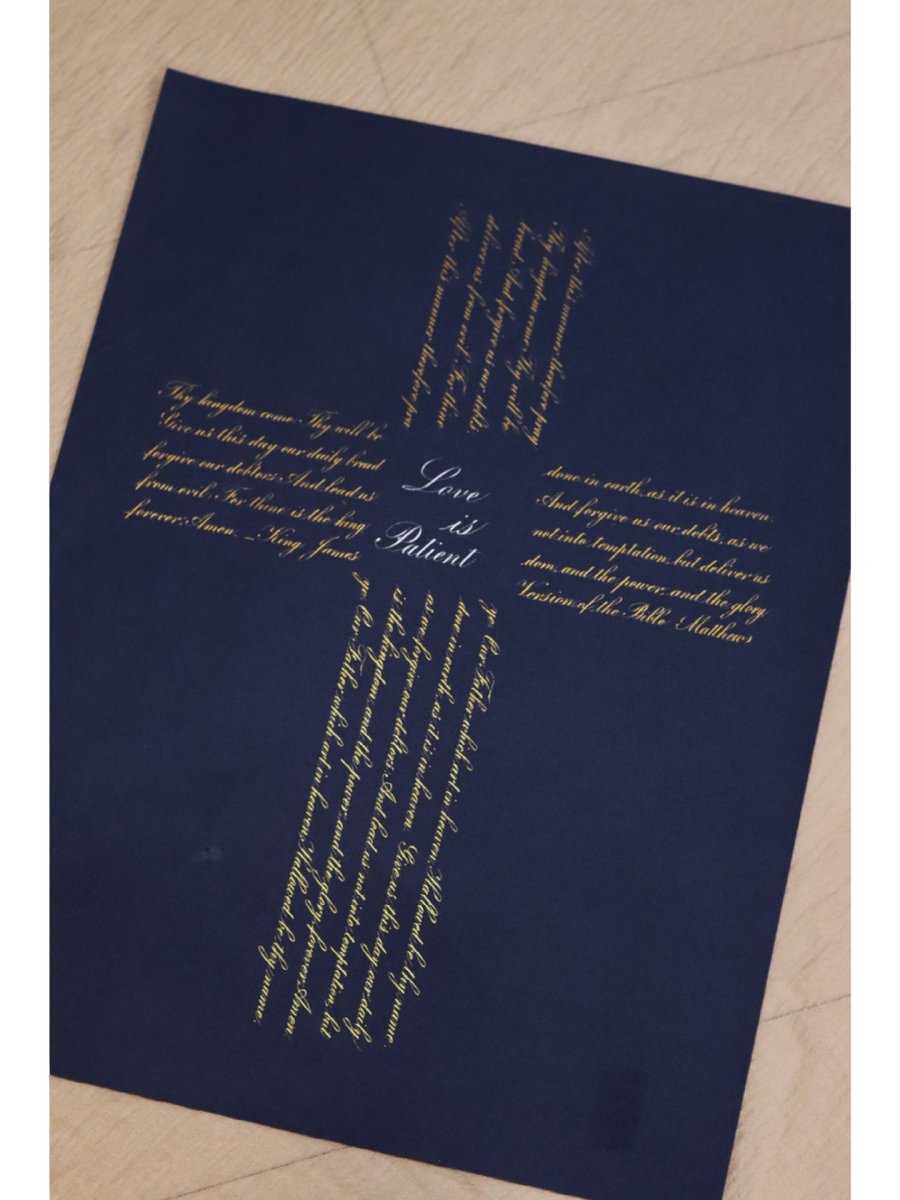 After this manner therefore pray
Thy kingdom come. Thy will be
bread. And forgive us our debts,
deliver us from evil: For thine
After this manner therefore pray
Thy kingdom come. Thy will be
Give us this day our daily bread
forgive our debtors. And lead us
from evil: For thine is the king
forever. Amen. _King James
Love
is
Patient
done in earth, as it is in heaven.
And forgive us our debts, as we
not into temptation, but deliver us
dom, and the power, and the glory,
Version of the Bible Matthews
ye: Our Father which art in heaven, Hallowed be thy name.
done in earth, as it is in heaven. Give us this day our daily
as we forgive our debtors. And lead us not into temptation, but
is the kingdom, and the power, and the glory, forever. Amen.
ye: Our Father which art in heaven, Hallowed be thy name.